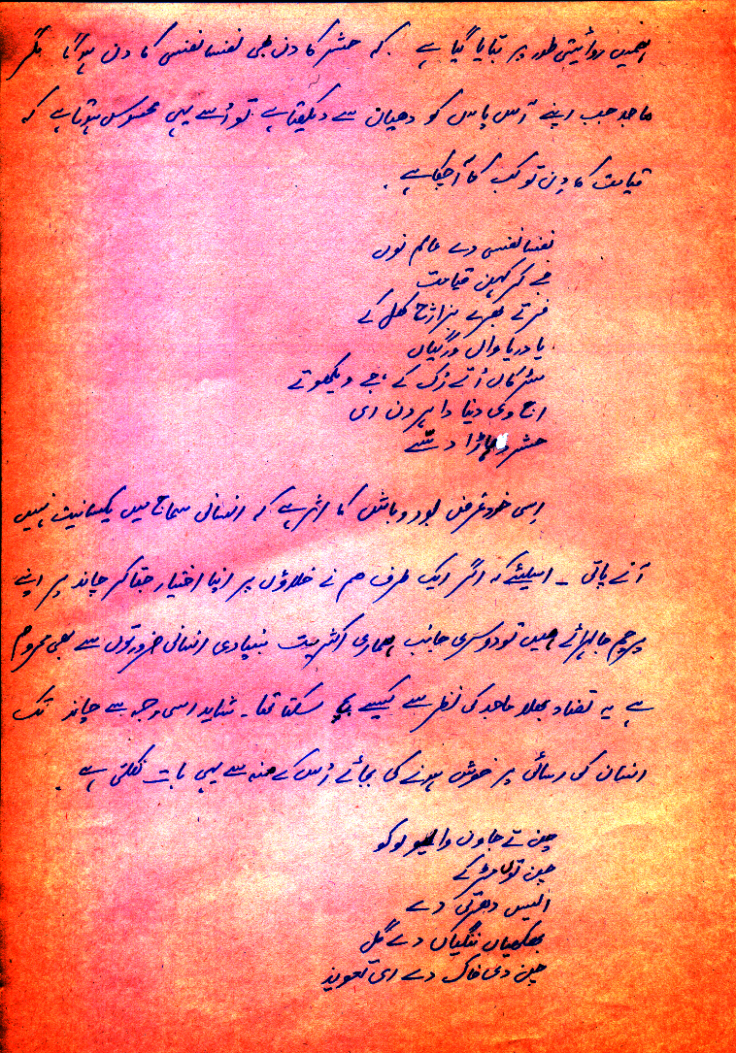 ہمیں روائیتی طور پر بتایا گیا ہے ۔ کہ حشر کا دن بھی نفسا نفسی کا دن ہوگا مگر
ماجد جب اپنے آس پاس کو دھیان سے دیکھتا ہے تو اُسے یہی محسوس ہوتا ہے کہ
قیامت کا دن تو کب کا آ چکا ہے ۔
نفسا نفسی دے عالم نوں
جے کر کہن قیامت
قیامت
یا دریا واں ورگیاں
سڑکاں اُتے رُک کے ، جے ویکھو تے
اج دی دنیا دا ہر دن ای
حشر دہاڑا دسّے
اِسی خود غرض بود و باش کا اثر ہے کہ انسانی سماج میں یکسانیت نہیں
آنے پاتی ۔ اسلیئے کہ اگر ایک طرف ہم نے خلاؤں پر اپنا اختیار جتا کر چاند پر اپنے
پرچم جا لہرائے ہیں تو دوسری جانب ہماری اکثریت بنیادی انسانی ضرورتوں سے بھی محروم
ہے یہ تضاد بھلا ماجد کی نظر سے کیسے سکتا تھا ۔ شاید اسی وجہ سے چاند تک
انسان کی رسائی پر خوش ہونے کی بجائے اُس کے منہ سے یہی بات نکلتی ہے ۔
چن تے جاون والیو لوکو
چن توں مڑ کے
ایس دھرتی دے
بھکھیاں ننگیاں دے گل
چن دی خاک دے ای تعویذ